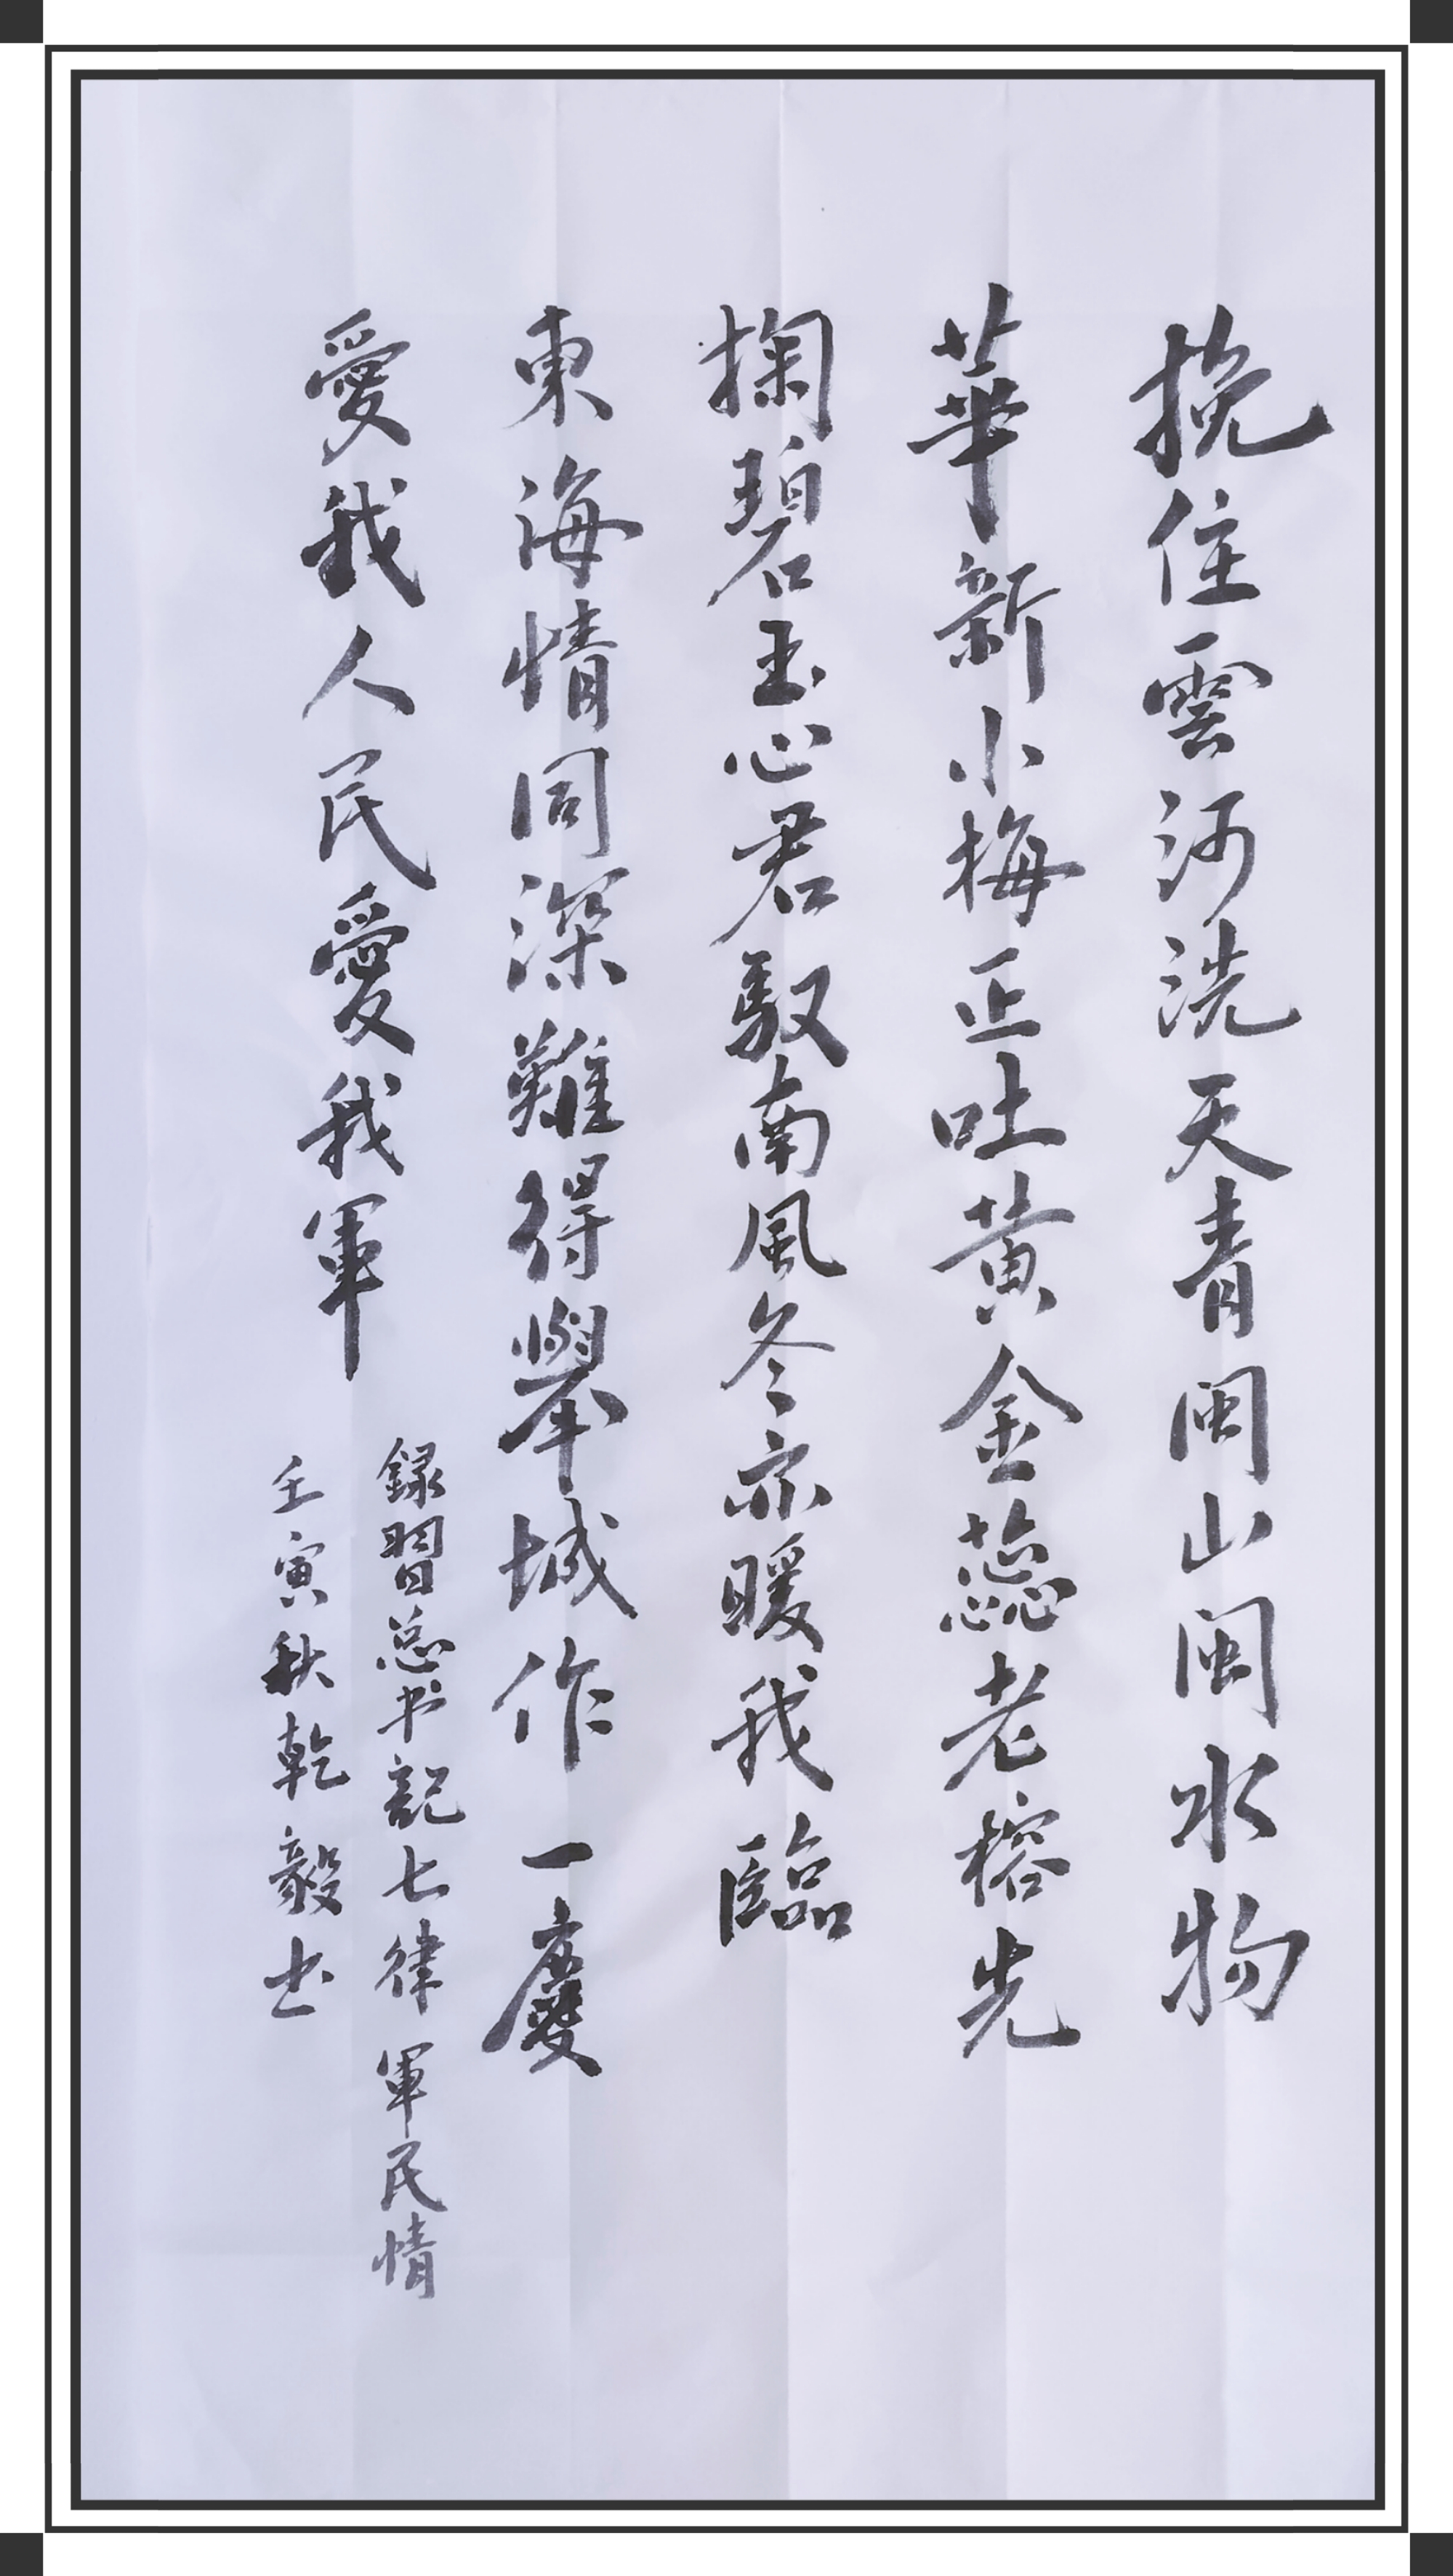 挽住雲河洗天青閩山閩水物
華新小梅正吐黄金蕊老榕先
掬碧玉心君馭南風冬亦暖我臨
東海情同深難得舉城作一慶
愛我人民愛我軍
録習总书記七律軍民情
壬寅秋乾毅书